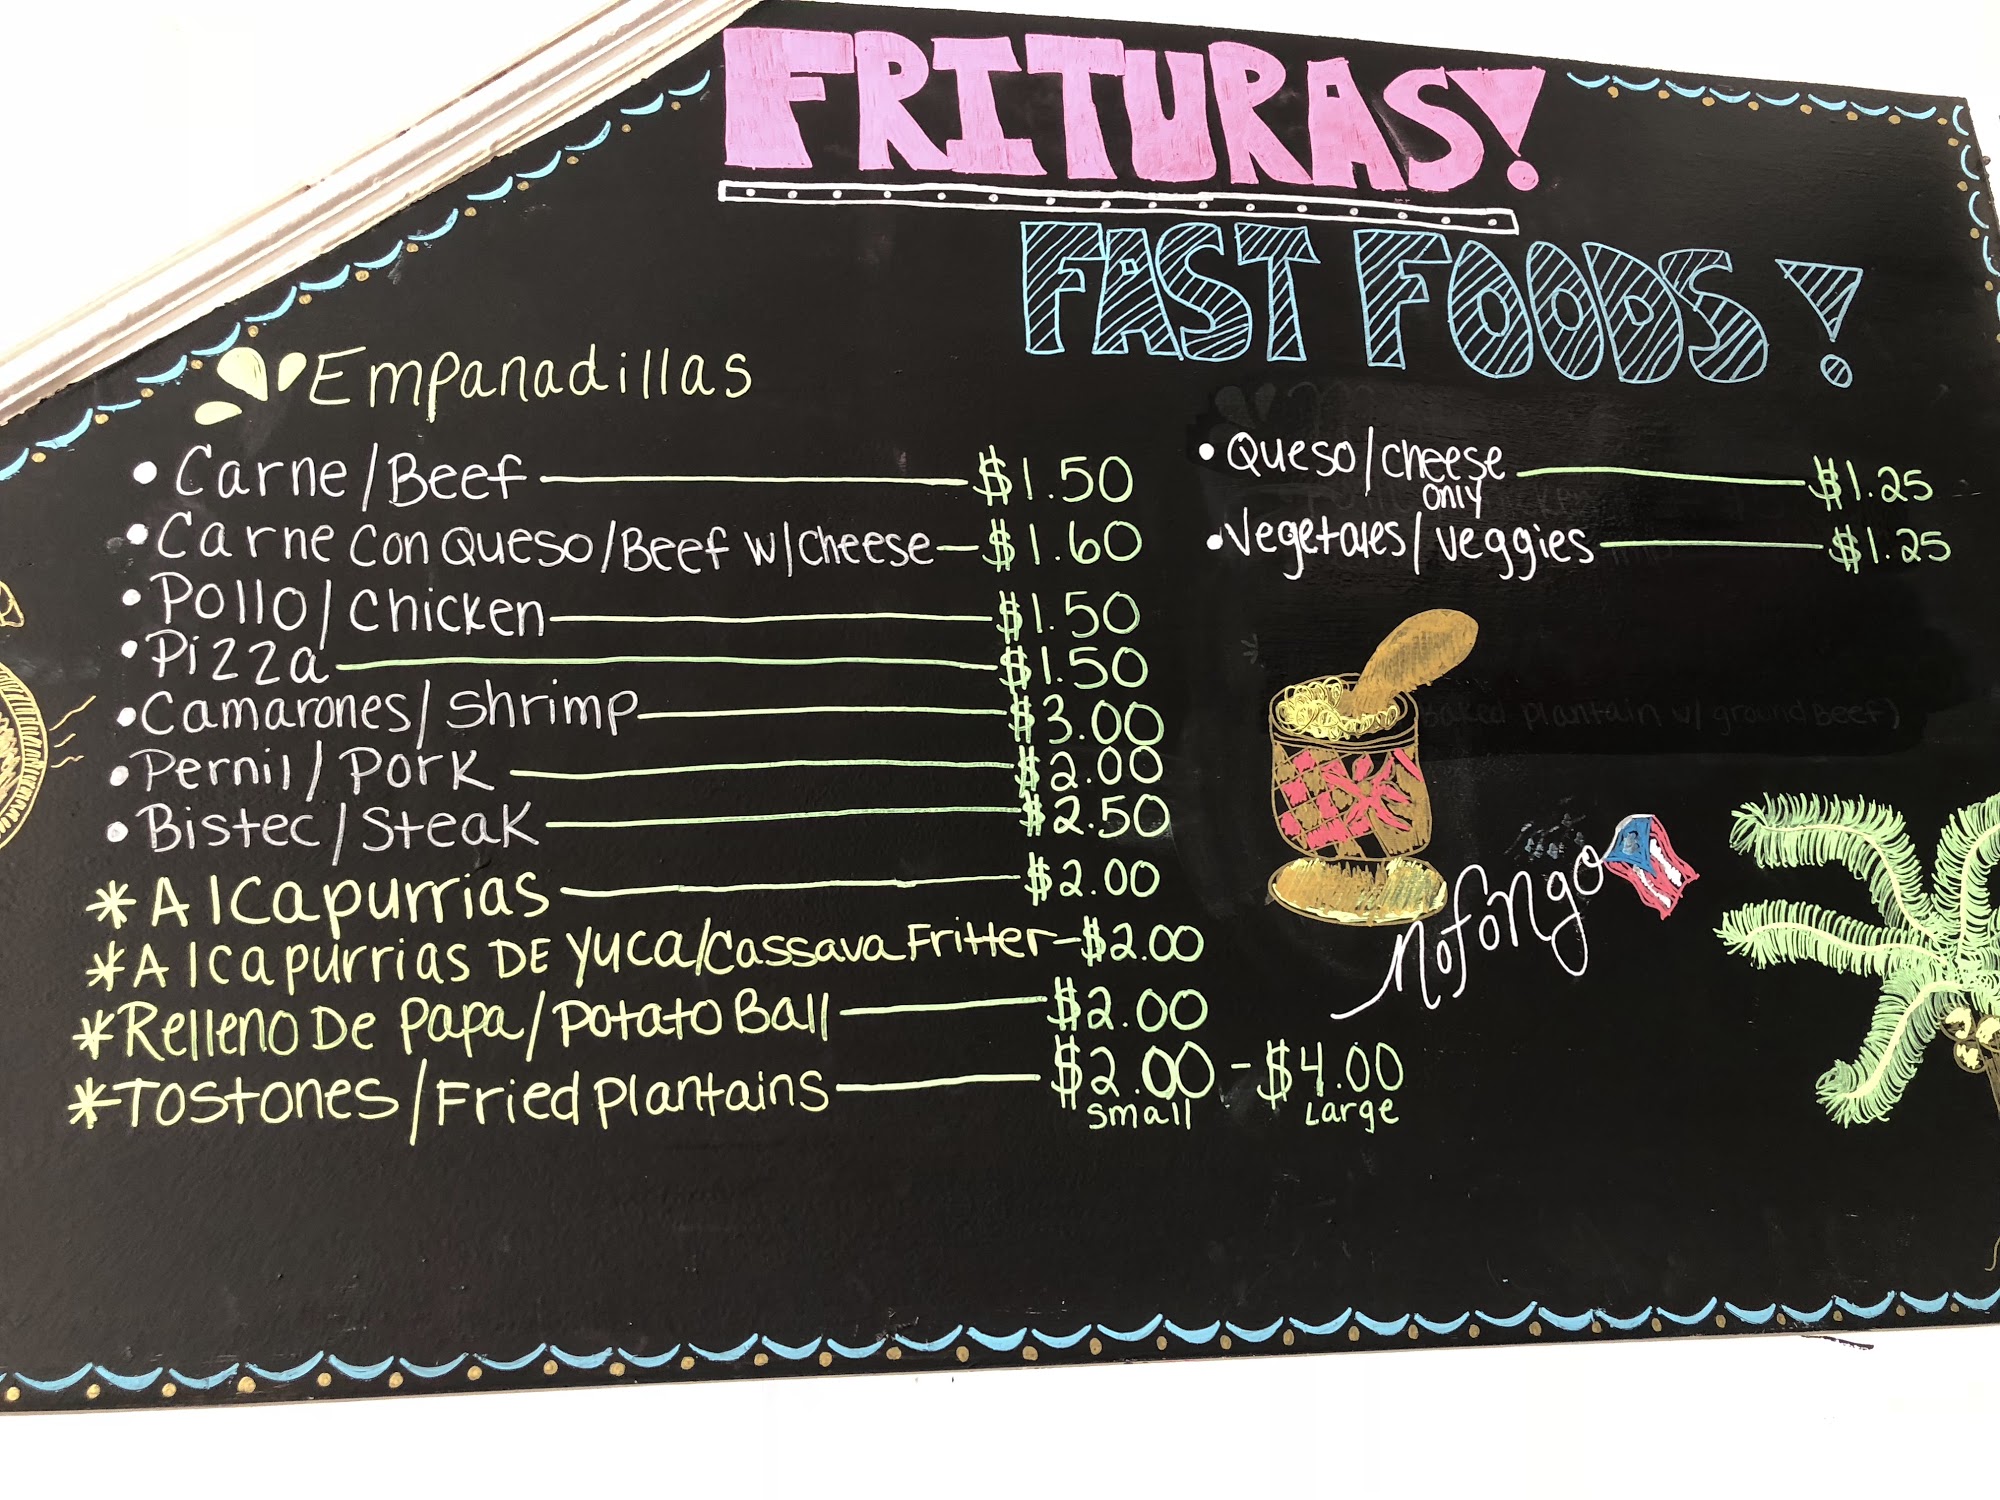 FRITURAS!
FAST FOODS!
Empanadillas
• Carne/Beef $1.50
• Carne Con Queso/Beef w/cheese $1.60
• Pollo/chicken $1.50
• Pizza $1.50
• Camarones/shrimp $3.00
• Pernil/Pork $2.00
• Bistec/Steak $2.50
* Alcapurrias $2.00
* Alcapurrias DE yuca/Cassava Fritter $2.00
* Relleno De Papa/Potato Ball $2.00
* Tostones/Fried Plantains $2.00 - $4.00
small Large
• Queso/cheese $1.25
only
• Vegetales/veggies $1.25
plantain w/ ground Beef)
Mofongo